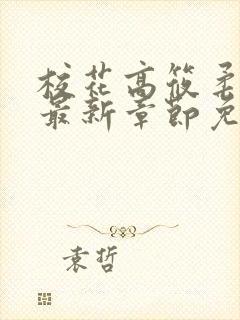 校花高筱柔
最新章節免
袁哲